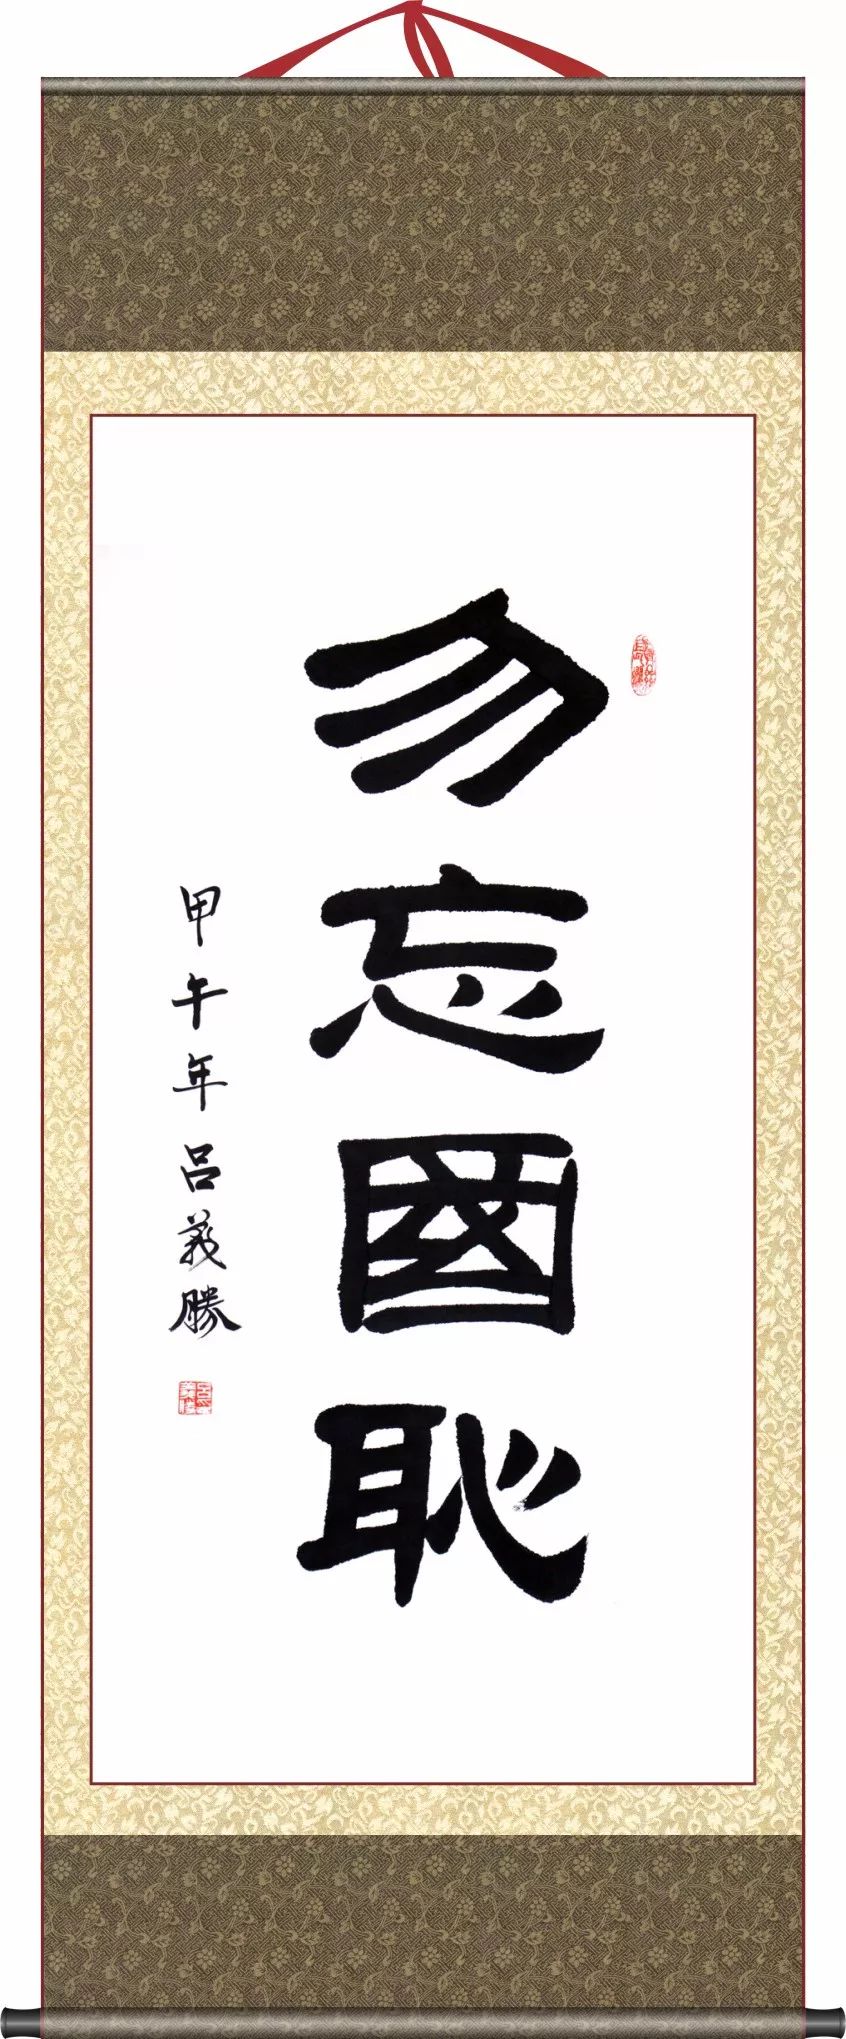 勿忘國恥
甲午年呂義勝